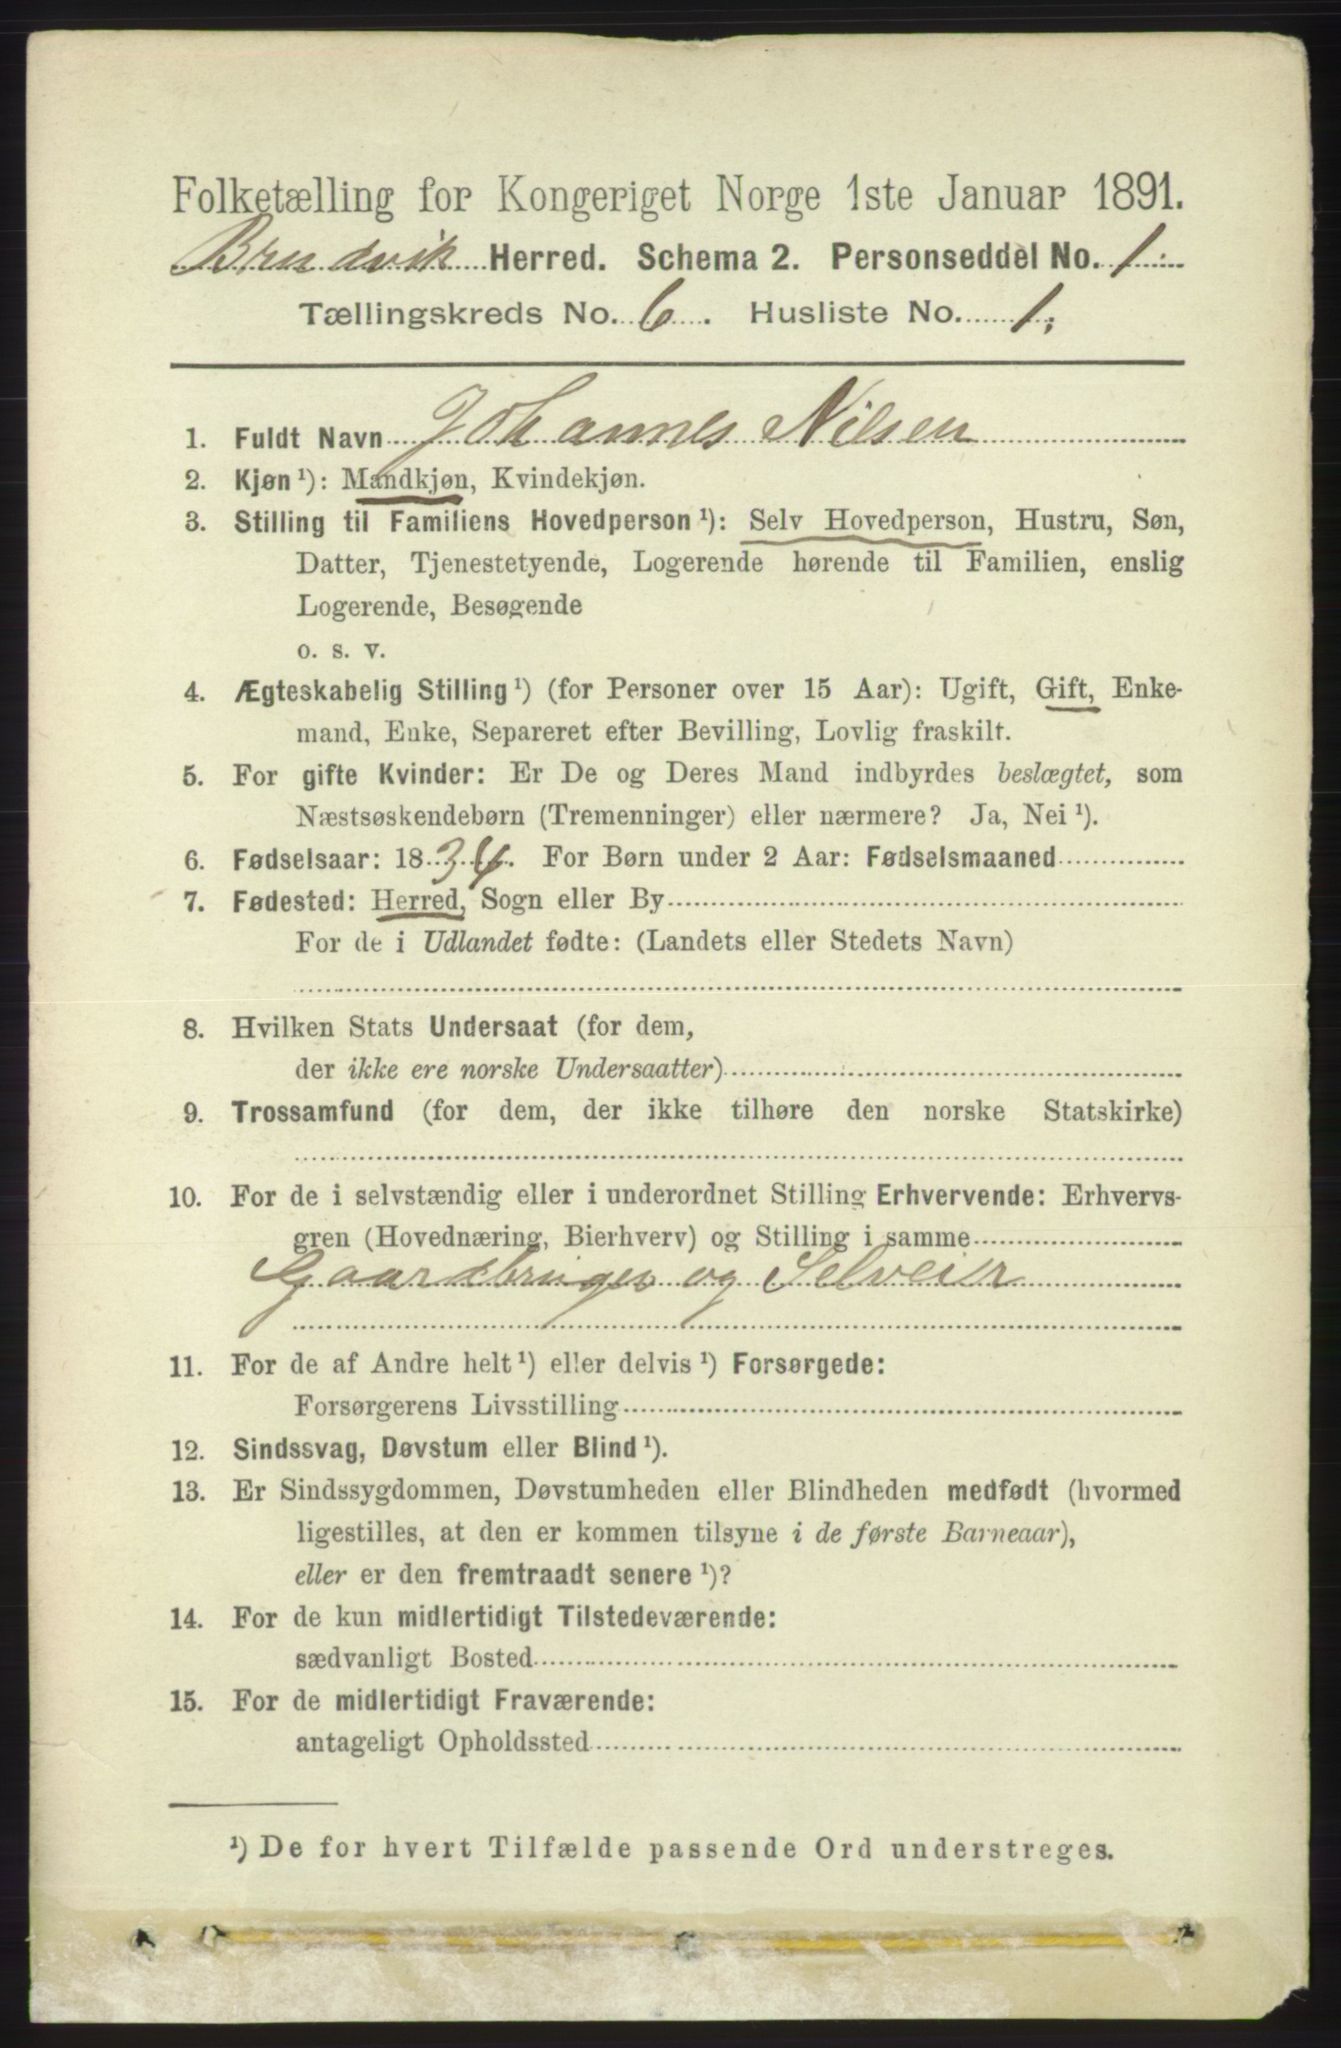 Folketælling for Kongeriget Norge 1ste Januar 1891.
Brudvik Herred. Schema 2. Personseddel No. 1.
Tællingskreds No. 6. Husliste No. 1.
1. Fuldt Navn Johannes Nilsen
2. Kjøn ¹): Mandkjøn, Kvindekjøn.
3. Stilling til Familiens Hovedperson ¹): Selv Hovedperson, Hustru, Søn,
Datter, Tjenestetyende, Logerende hørende til Familien, enslig
Logerende, Besøgende
o. s. v.
4. Ægteskabelig Stilling ¹) (for Personer over 15 Aar): Ugift, Gift, Enke-
mand, Enke, Separeret efter Bevilling, Lovlig fraskilt.
5. For gifte Kvinder: Er De og Deres Mand indbyrdes beslægtet, som
Næstsøskendebørn (Tremenninger) eller nærmere? Ja, Nei ¹).
6. Fødselsaar: 1834. For Børn under 2 Aar: Fødselsmaaned
7. Fødested: Herred, Sogn eller By
For de i Udlandet fødte: (Landets eller Stedets Navn)
8. Hvilken Stats Undersaat (for dem,
der ikke ere norske Undersaatter)
9. Trossamfund (for dem, der ikke tilhøre den norske Statskirke)
10. For de i selvstændig eller i underordnet Stilling Erhvervende: Erhvervs-
gren (Hovednæring, Bierhverv) og Stilling i samme
Gaardbruger og Selveier
11. For de af Andre helt ¹) eller delvis ¹) Forsørgede:
Forsørgerens Livsstilling
12. Sindssvag, Døvstum eller Blind ¹).
13. Er Sindssygdommen, Døvstumheden eller Blindheden medfødt (hvormed
ligestilles, at den er kommen tilsyne i de første Barneaar),
eller er den fremtraadt senere ¹)?
14. For de kun midlertidigt Tilstedeværende:
sædvanligt Bosted
15. For de midlertidigt Fraværende:
antageligt Opholdssted
¹) De for hvert Tilfælde passende Ord understreges.